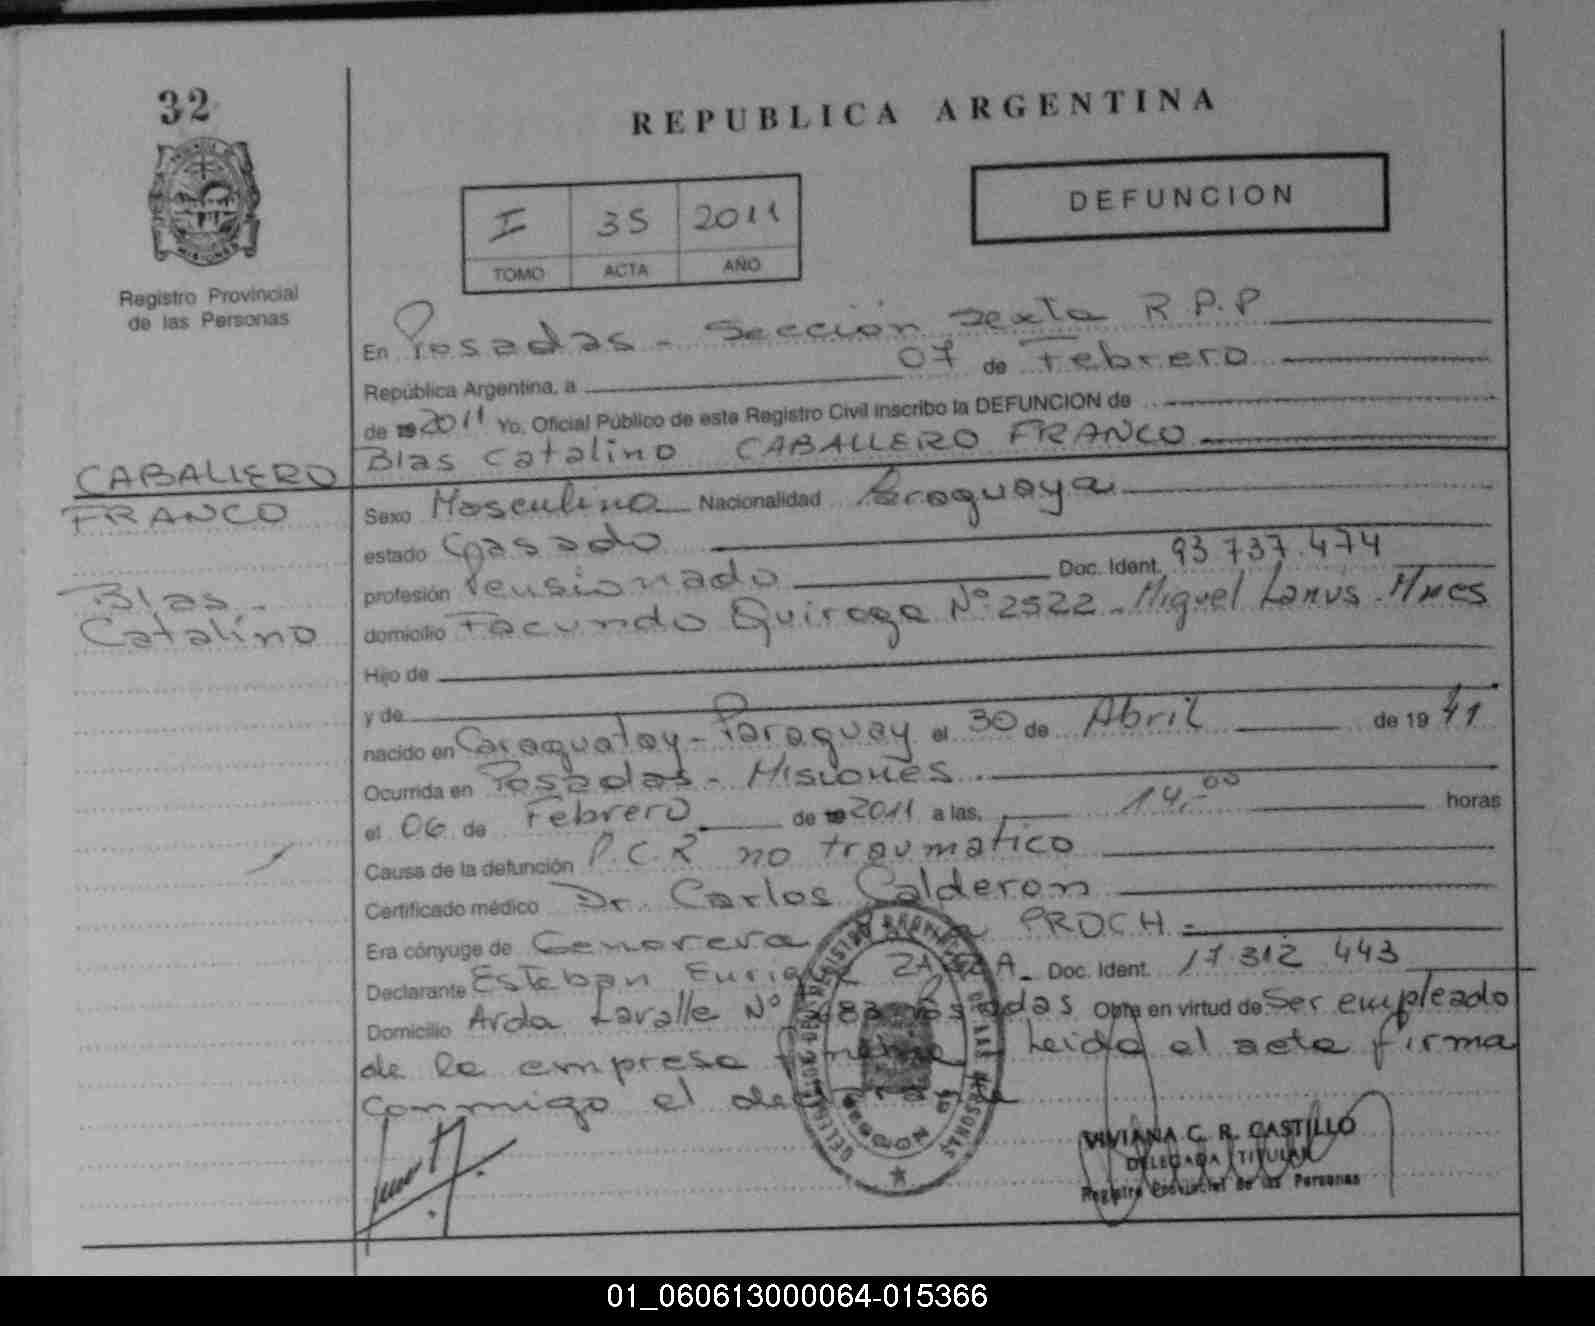 32
REPUBLICA ARGENTINA
DEFUNCION
I 35 2011
TOMO ACTA AÑO
Registro Provincial
de las Personas
En Posadas - Sección sexta R.P.P
República Argentina, a 07 de Febrero
de 19 2011 Yo, Oficial Público de este Registro Civil inscribo la DEFUNCION de
Blas Catalino CABALLERO FRANCO
CABALLERO
FRANCO
Blas
Catalino
Sexo Masculino Nacionalidad Paraguaya
estado Casado
profesión Pensionado Doc. Ident. 93 737.474
domicilio Facundo Quiroga Nº 2522 - Miguel Lanus. Mnes
Hijo de
y de
nacido en Caraguatay - Paraguay el 30 de Abril de 19 41
Ocurrida en Posadas - Misiones
el 06 de Febrero de 19 2011 a las, 14,-00 horas
Causa de la defunción P.C.R no traumatico
Certificado médico Dr. Carlos Calderon
Era cónyuge de PROCH.=
Declarante Esteban Doc. Ident. 17.312 443
Domicilio Avda Lavalle Nº Obra en virtud de Ser empleado
de la empresa Leida el acta firma
conmigo el
VIVIANA C. R. CASTILLO
DELEGADA TITULAR
Registro Provincial de las Personas
01_060613000064-015366